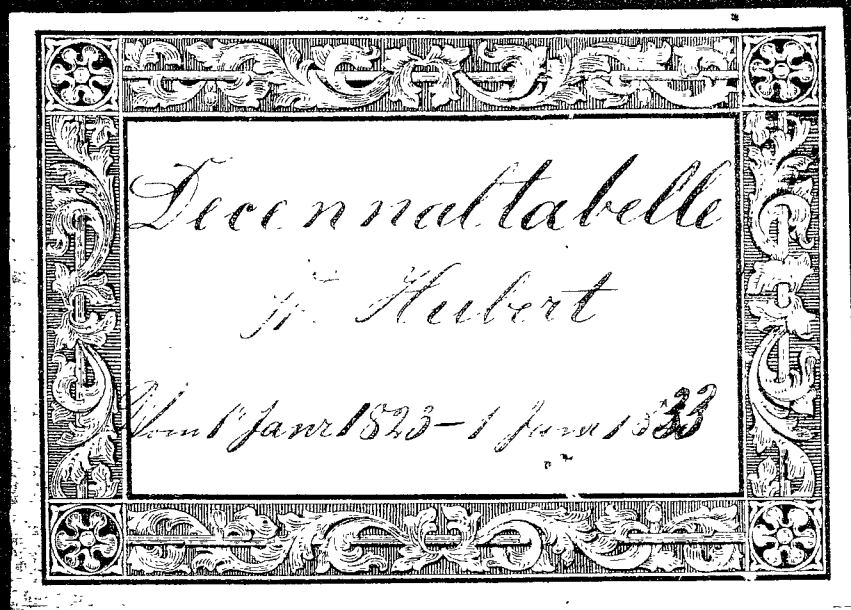 Decennaltabelle
St. Hubert
Vom 1 Janr 1823 – 1 Janr 1833